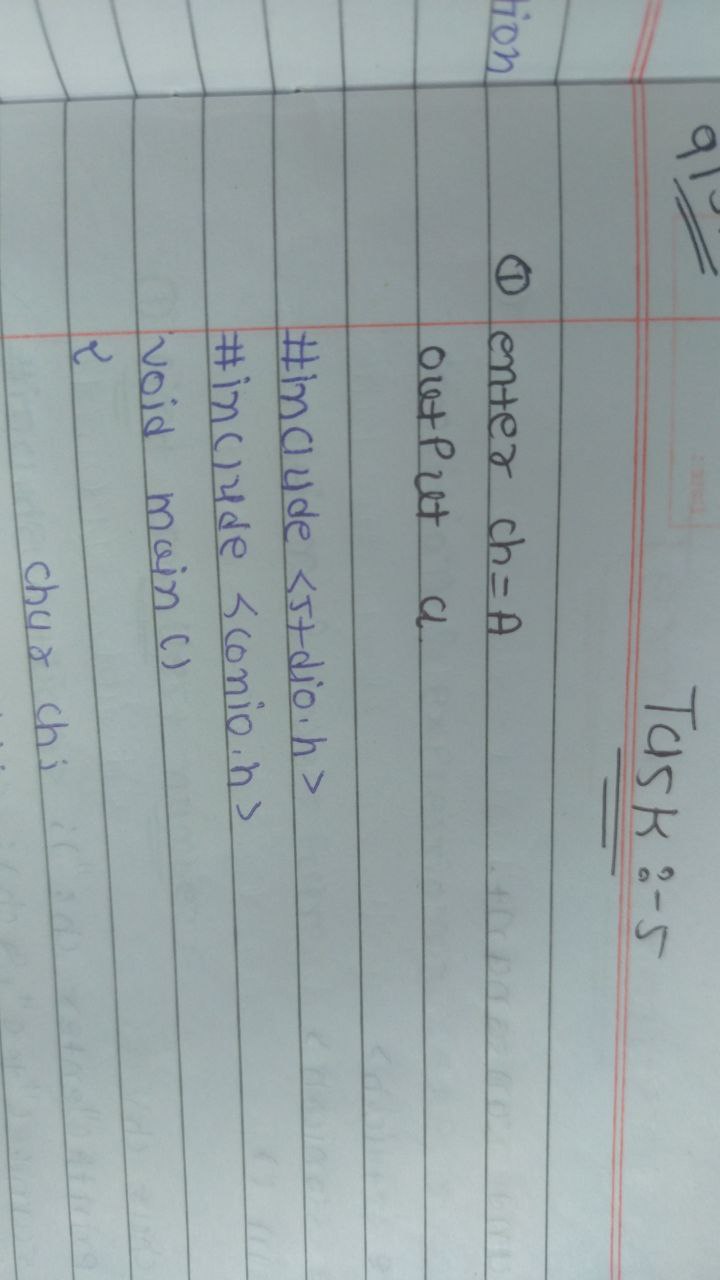 tion
Task :- 5
① enter ch = A
output a
#include <stdio.h>
#include <conio.h>
void main ()
{
char ch;